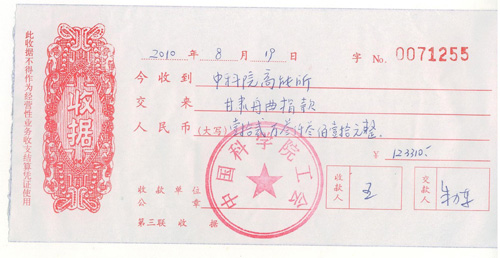 此收据不得作为经营性业务收支结算凭证使用
收据
2010 年 8 月 19 日 字 No. 0071255
今收到 中科院高能所
交来 甘肃舟曲捐款
人民币(大写)壹拾贰万叁仟叁佰壹拾元整
¥ 123310.-
收款单位
公章
收款人 王
交款人
中国科学院工会
第三联 收据